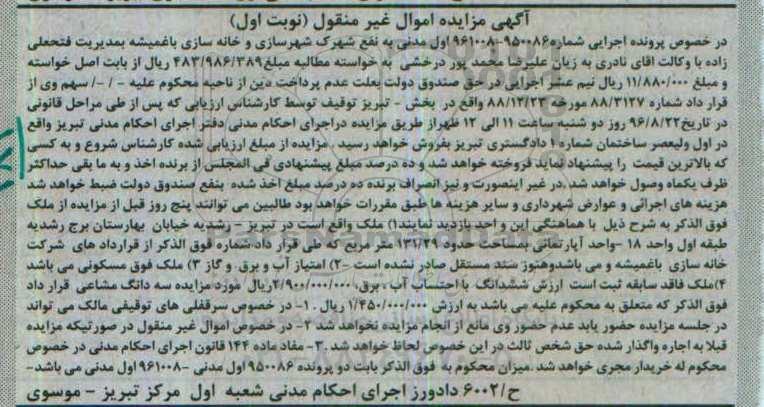 آگهی مزایده اموال غیر منقول (نوبت اول)
در خصوص پرونده اجرایی شماره ۹۵۰۰۸۶-۹۶۱۰۰۸ اول مدنی به نفع شهرک شهرسازی و خانه سازی باغمیشه بمدیریت فتحعلی
زاده با وکالت اقای نادری به زیان علیرضا محمد پور درخشی به خواسته مطالبه مبلغ ۴۸۳/۹۸۶/۳۸۹ ریال از بابت اصل خواسته
و مبلغ ۱۱/۸۸۰/۰۰۰ ریال نیم عشر اجرایی در حق صندوق دولت بعلت عدم پرداخت دین از ناحیه محکوم علیه - / -/ سهم وی از
قرار داد شماره ۸۸/۳۱۲۷ مورخه ۸۸/۱۲/۲۳ واقع در بخش - تبریز توقیف توسط کارشناس ارزیابی که پس از طی مراحل قانونی
در تاریخ ۹۶/۸/۲۲ روز دو شنبه ساعت ۱۱ الی ۱۲ ظهر از طریق مزایده دراجرای احکام مدنی دفتر اجرای احکام مدنی تبریز واقع
در اول ولیعصر ساختمان شماره ۱ دادگستری تبریز بفروش خواهد رسید . مزایده از مبلغ ارزیابی شده کارشناس شروع و به کسی
که بالاترین قیمت را پیشنهاد نماید فروخته خواهد شد و ده درصد مبلغ پیشنهادی فی المجلس از برنده اخذ و به ما بقی حداکثر
ظرف یکماه وصول خواهد شد .در غیر اینصورت و نیز انصراف برنده ده درصد مبلغ اخذ شده بنفع صندوق دولت ضبط خواهد شد
هزینه های اجرائی و عوارض شهرداری و سایر هزینه ها طبق مقررات خواهد بود طالبین می توانند پنج روز قبل از مزایده از ملک
فوق الذکر به شرح ذیل با هماهنگی این واحد بازدید نمایند ۱) ملک واقع است در تبریز - رشدیه خیابان بهارستان برج رشدیه
طبقه اول واحد ۱۸ -واحد آپارتمانی بمساحت حدود ۱۳۱/۲۹ متر مربع که طی قرار داد شماره فوق الذکر از قرارداد های شرکت
خانه سازی باغمیشه و می باشد وهنوز سند مستقل صادر نشده است -۲) امتیاز آب و برق و گاز ۳) ملک فوق مسکونی می باشد
۴)ملک فاقد سابقه ثبت است ارزش ششدانگ با احتساب آب ، برق، ۲/۹۰۰/۰۰۰/۰۰۰ریال مورد مزایده سه دانگ مشاعی قرار داد
فوق الذکر که متعلق به محکوم علیه می باشد به ارزش ۱/۴۵۰/۰۰۰/۰۰۰ ریال . ۱- در خصوص سرقفلی های توقیفی مالک می تواند
در جلسه مزایده حضور یابد عدم حضور وی مانع از انجام مزایده نخواهد شد ۲- در خصوص اموال غیر منقول در صورتیکه مزایده
قبلا به اجاره واگذار شده حق شخص ثالث در این خصوص لحاظ خواهد شد .۳- مفاد ماده ۱۴۴ قانون اجرای احکام مدنی در خصوص
محکوم له خریدار مجری خواهد شد .میزان محکوم به فوق الذکر بابت دو پرونده ۹۵۰۰۸۶ اول مدنی -۹۶۱۰۰۸ اول مدنی می باشد-
ح/۶۰۰۲ دادورز اجرای احکام مدنی شعبه اول مرکز تبریز - موسوی